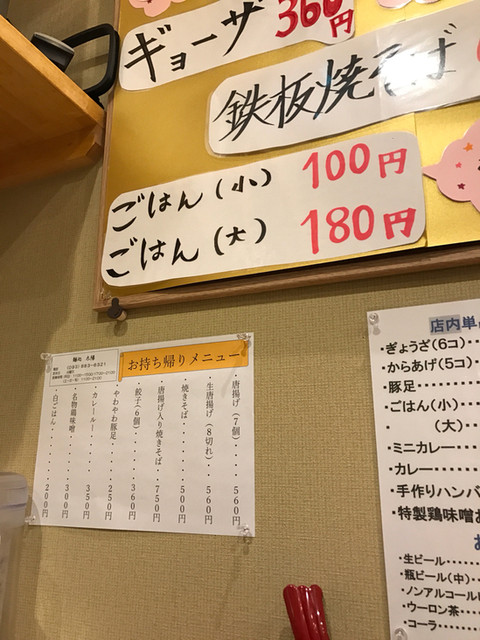 ギョーザ 360円
鉄板焼そば
ごはん(小) 100円
ごはん(大) 180円
お持ち帰りメニュー
唐揚げ(7個)・・・・560円
生唐揚げ(8切れ)・・560円
焼きそば・・・・・・500円
唐揚げ入り焼きそば・・750円
餃子(6個)・・・・・360円
やわやわ豚足・・・・250円
カレールー・・・・・350円
名物鶏味噌・・・・・300円
白ごはん・・・・・・200円
店内単
・ぎょうざ(6コ)・・・
・からあげ(5コ)・・・
・豚足・・・・・・
・ごはん(小)・・・
・　　(大)・・・
・ミニカレー・・・・
・カレー・・・・・・
・手作りハンバ
・特製鶏味噌お
・生ビール・・・・
・瓶ビール(中)・・・
・ノンアルコール
・ウーロン茶・・・
・コーラ・・・・